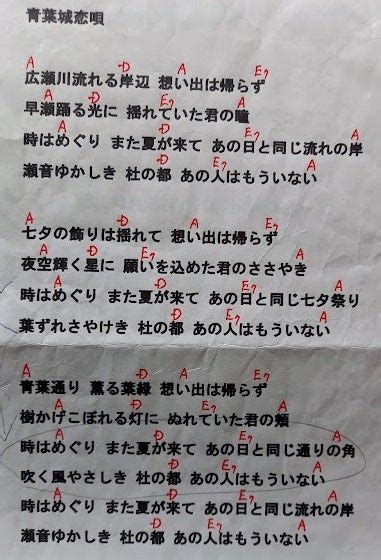 青葉城恋唄
A D A E7
広瀬川流れる岸辺 想い出は帰らず
A D E7 A
早瀬踊る光に 揺れていた君の瞳
A D E7 A
時はめぐり また夏が来て あの日と同じ流れの岸
A D E7 A
瀬音ゆかしき 杜の都 あの人はもういない
A D A E7
七夕の飾りは揺れて 想い出は帰らず
A D E7 A
夜空輝く星に 願いを込めた君のささやき
A D E7 A
時はめぐり また夏が来て あの日と同じ七夕祭り
A D E7 A
葉ずれさやけき 杜の都 あの人はもういない
A D A E7
青葉通り 薫る葉緑 想い出は帰らず
A D E7 A
樹かげこぼれる灯に ぬれていた君の頬
A D E7 A
時はめぐり また夏が来て あの日と同じ通りの角
A D E7 A
吹く風やさしき 杜の都 あの人はもういない
A D E7 A
時はめぐり また夏が来て あの日と同じ流れの岸
A D E7 A
瀬音ゆかしき 杜の都 あの人はもういない